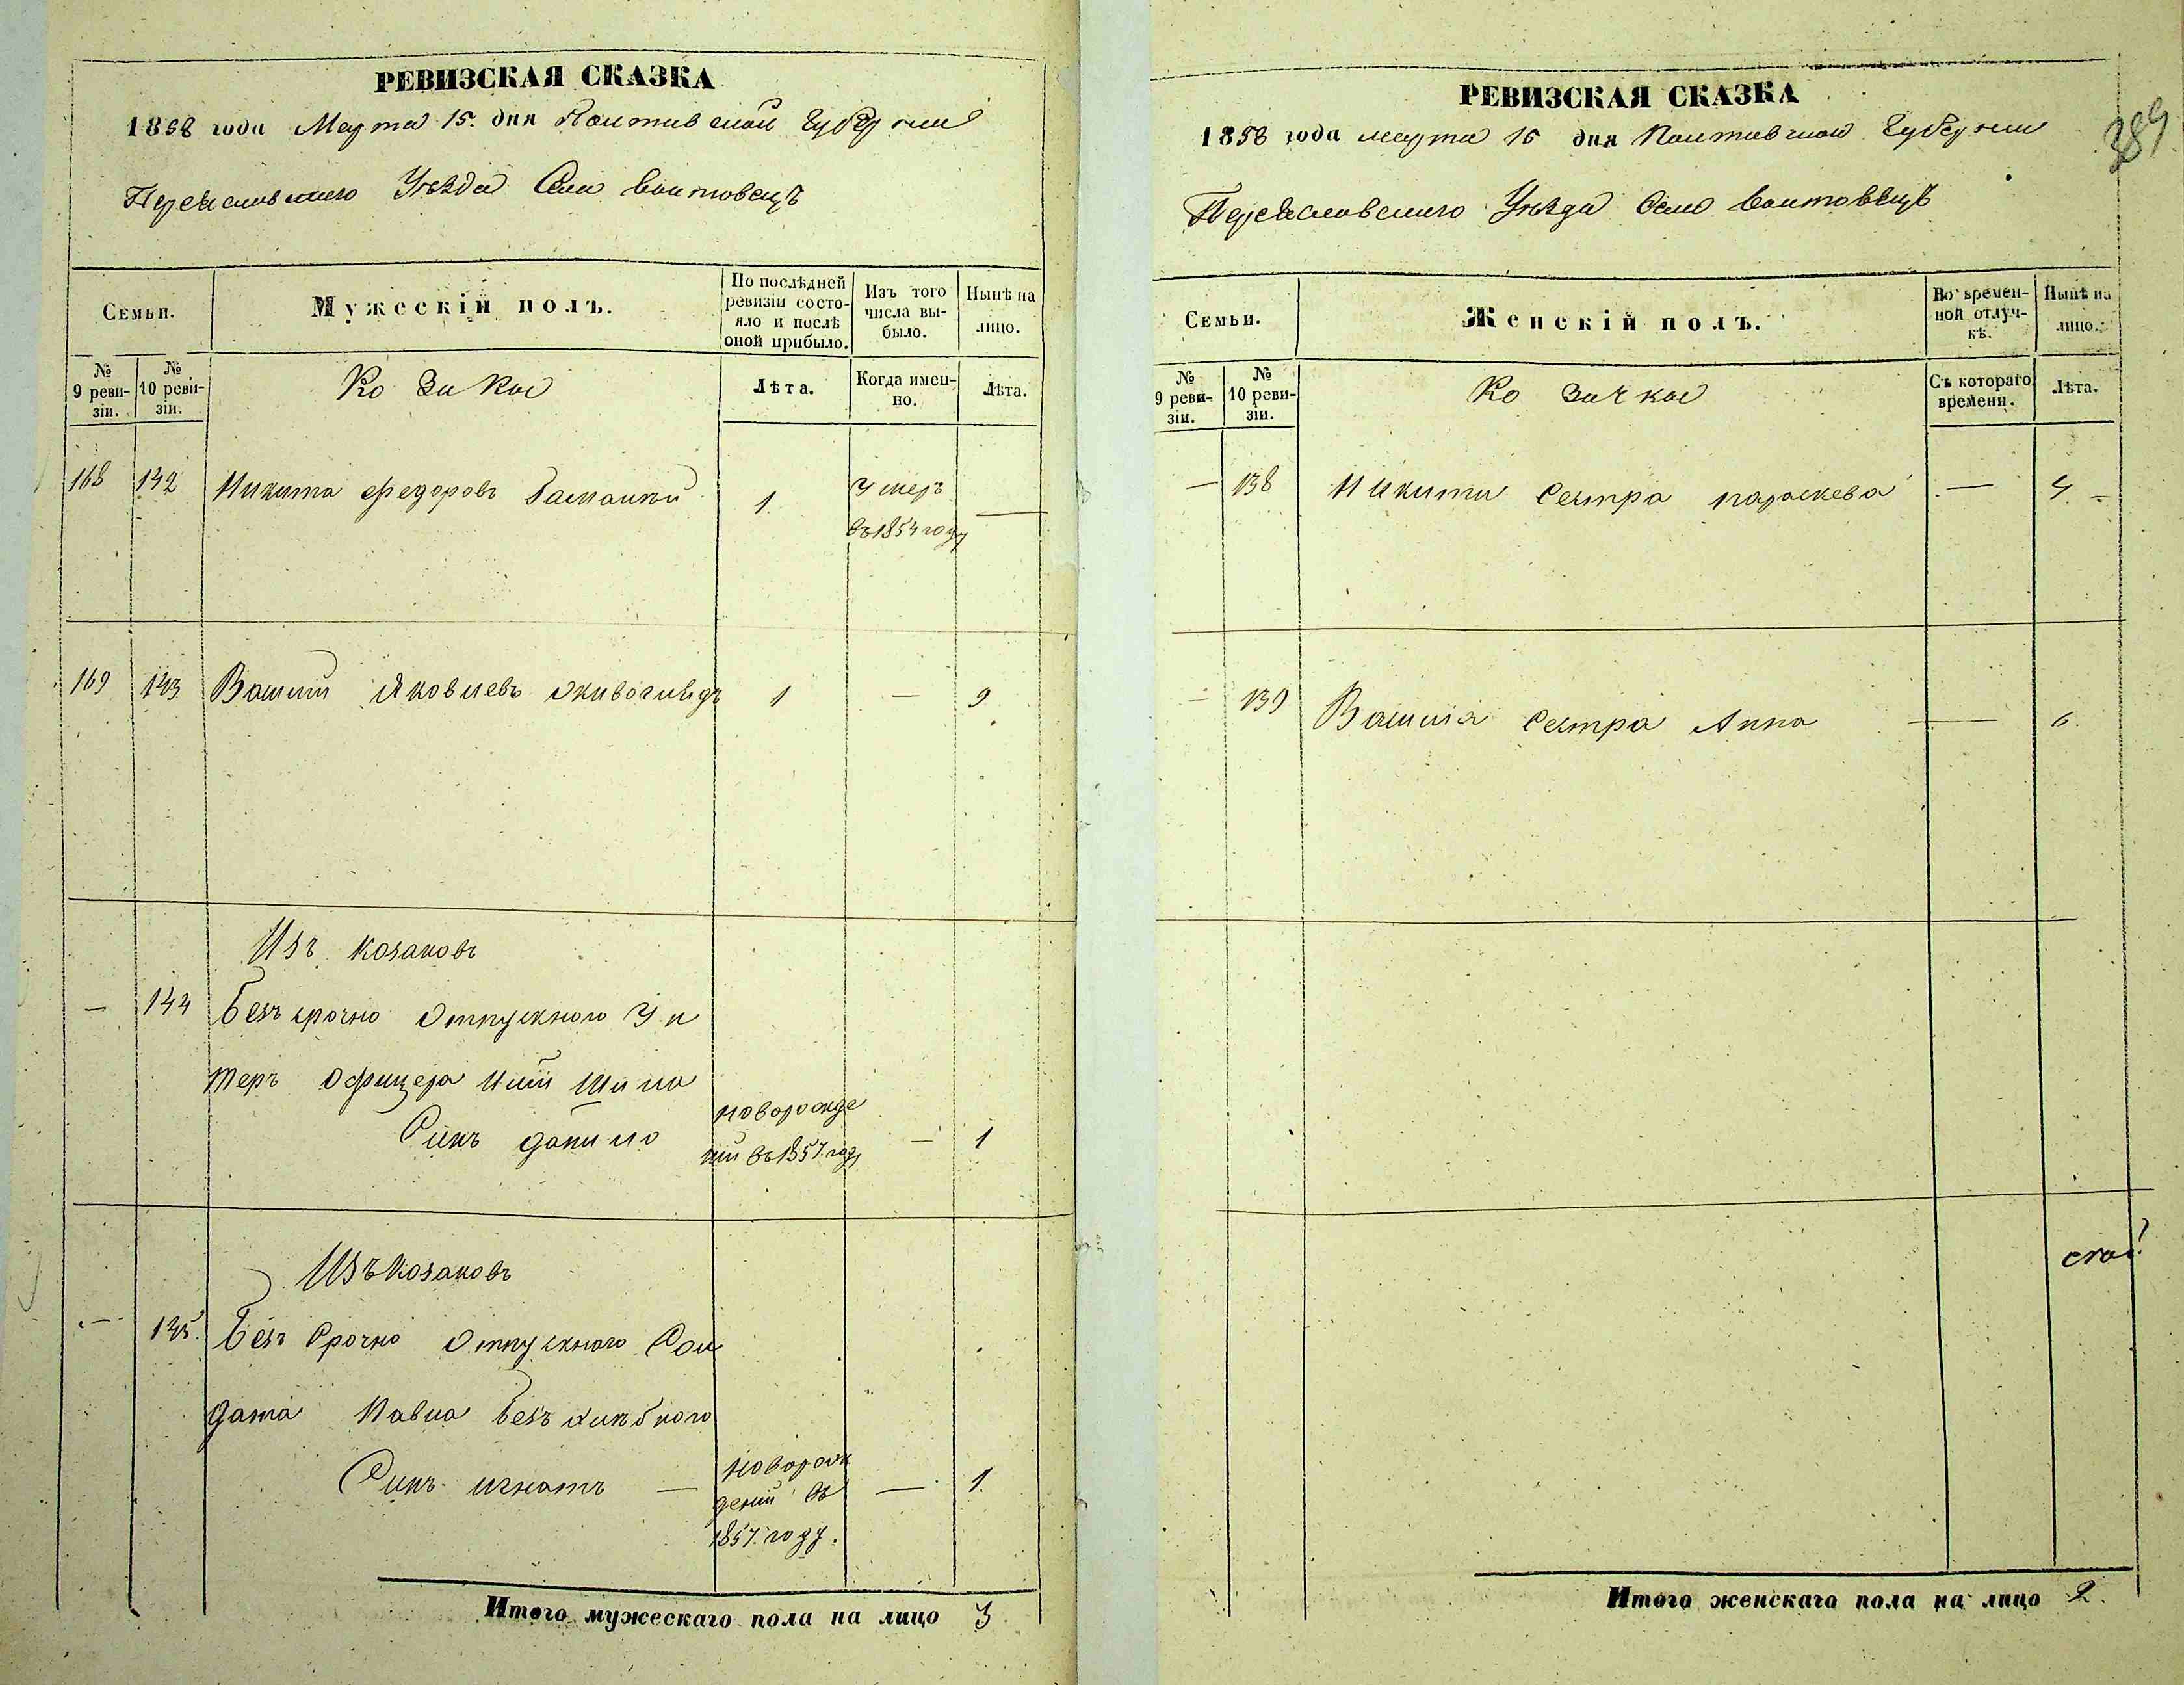 РЕВИЗСКАЯ СКАЗКА
1858 года Марта 15. дня Полтавской Губернии
Переяславского Уѣзда Села Войтовецъ
Семьи.
Мужескій полъ.
По послѣдней ревизіи состояло и послѣ оной прибыло.
Изъ того числа выбыло.
Нынѣ на лицо.
№ 9 ревизіи.
№ 10 ревизіи.
Козаки
Лѣта.
Когда именно.
Лѣта.
168 142 Никита Федоровъ 1 Умеръ —
въ 1854 году
169 143 Василий Яковлевъ 1 — 9
Изъ козаковъ
— 144 Безъ срочно Отпускного Ун
теръ Офицера
Синъ данило новорожде — 1
ний въ 1857. году
Изъ Козаковъ
— 145. Безъ Срочно Отпускного Сол
дата Павла Безъ
Синъ игнатъ — новорож — 1.
дений въ
1857. году.
Итого мужескаго пола на лицо 3
РЕВИЗСКАЯ СКАЗКА
1858 года марта 15 дня Полтавской Губернии
389
Переяславского Уѣзда Село Войтовецъ
Семьи.
Женскій полъ.
Во временной отлучкѣ.
Нынѣ на лицо.
№ 9 ревизіи.
№ 10 ревизіи.
Козачки
Съ котораго времени.
Лѣта.
— 138 Никити Сестра параскева —
— 139 Василія Сестра Анна — 6.
Итого женскаго пола на лицо 2.